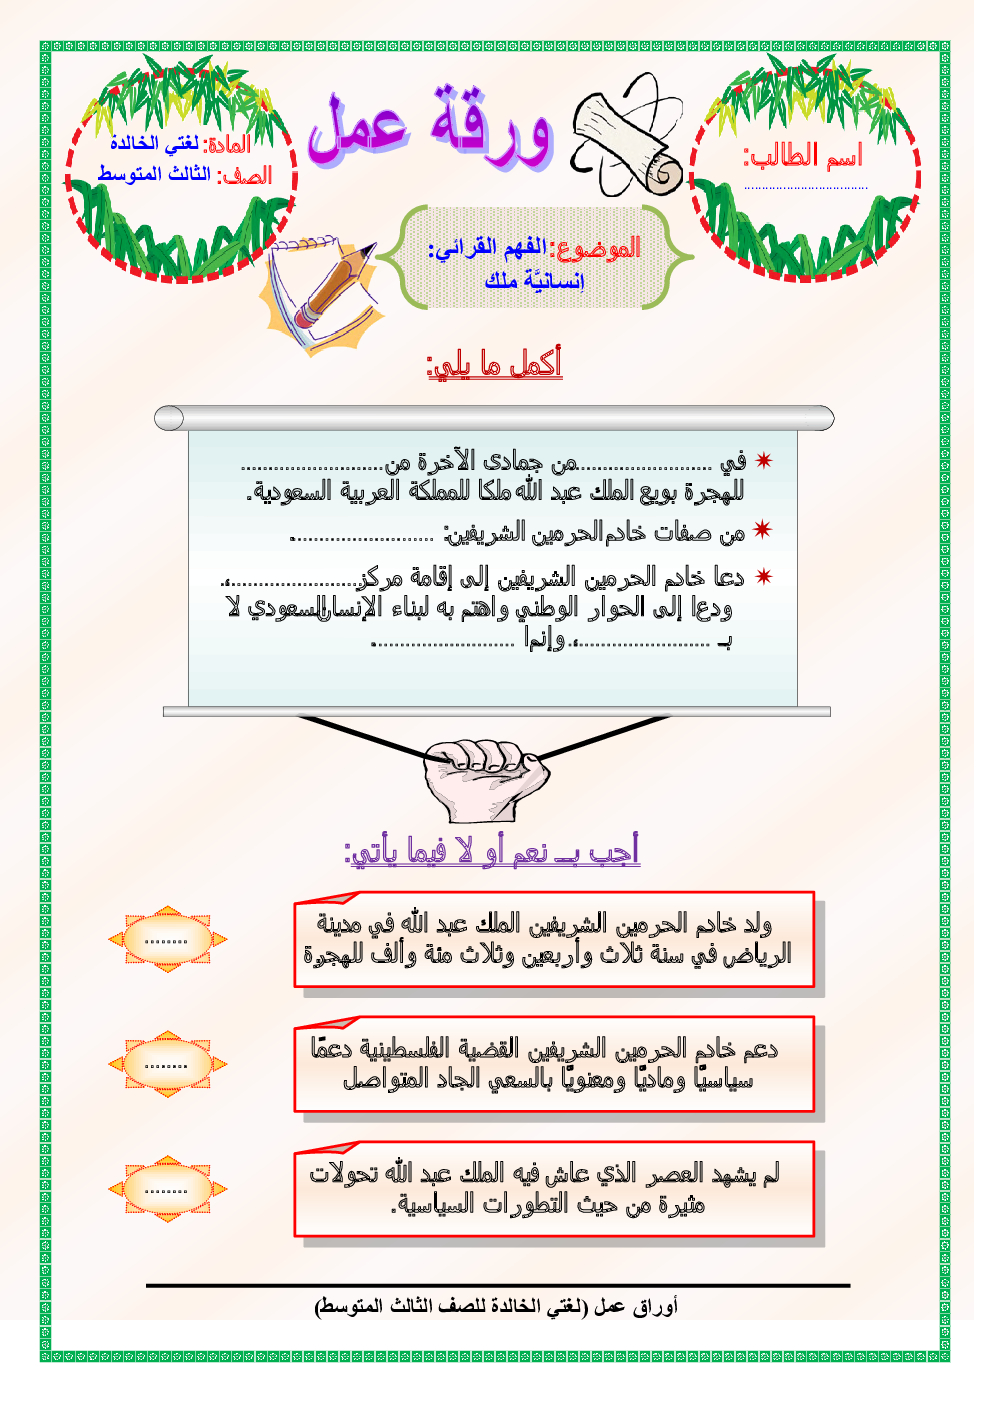 ورقة عمل
اسم الطالب:
..................................
المادة: لغتي الخالدة
الصف: الثالث المتوسط
الموضوع: الفهم القرائي:
إنسانيَّة ملك
أكمل ما يلي:
في .........................من جمادى الآخرة من..........................
للهجرة بويع الملك عبد الله ملكا للمملكة العربية السعودية.
من صفات خادم الحرمين الشريفين: ..........................
دعا خادم الحرمين الشريفين إلى إقامة مركز.......................،
ودعا إلى الحوار الوطني واهتم به لبناء الإنسان السعودي لا
بـ ........................، وإنما ..........................
أجب بـــ نعم أو لا فيما يأتي:
ولد خادم الحرمين الشريفين الملك عبد الله في مدينة
الرياض في سنة ثلاث وأربعين وثلاث مئة وألف للهجرة
........
دعم خادم الحرمين الشريفين القضية الفلسطينية دعمًا
سياسيًّا وماديًّا ومعنويًّا بالسعي الجاد المتواصل
........
لم يشهد العصر الذي عاش فيه الملك عبد الله تحولات
مثيرة من حيث التطورات السياسية.
........
أوراق عمل (لغتي الخالدة للصف الثالث المتوسط)